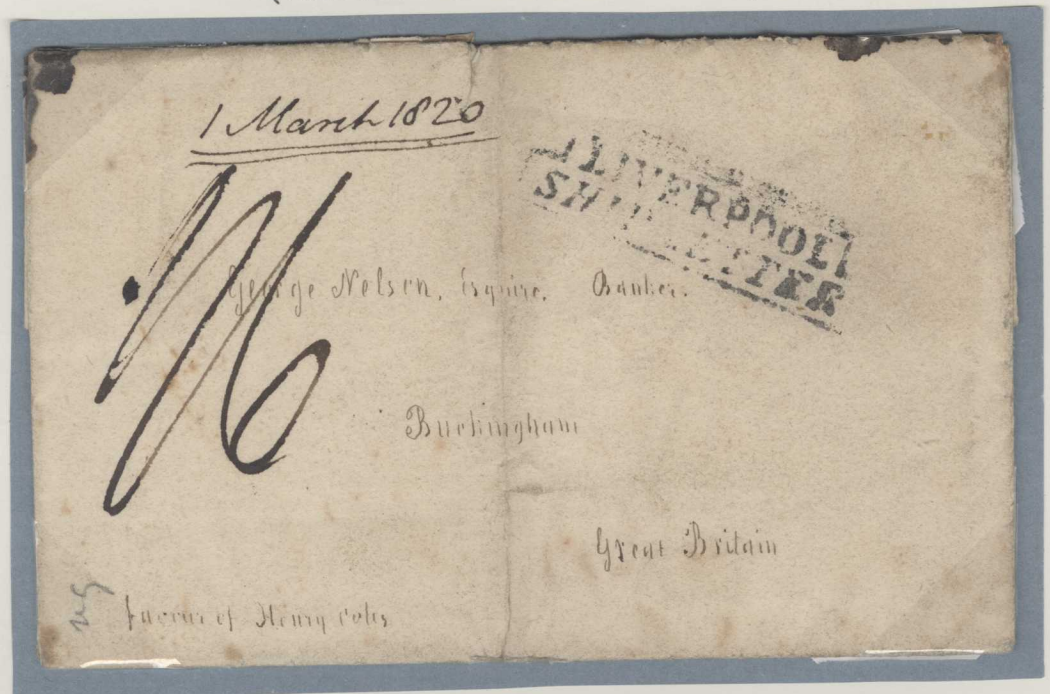 1 March 1820
LIVERPOOL
SHIP LETTER
George Nelson, Esquire, Banker.
Buckingham
Great Britain
favour of Henry